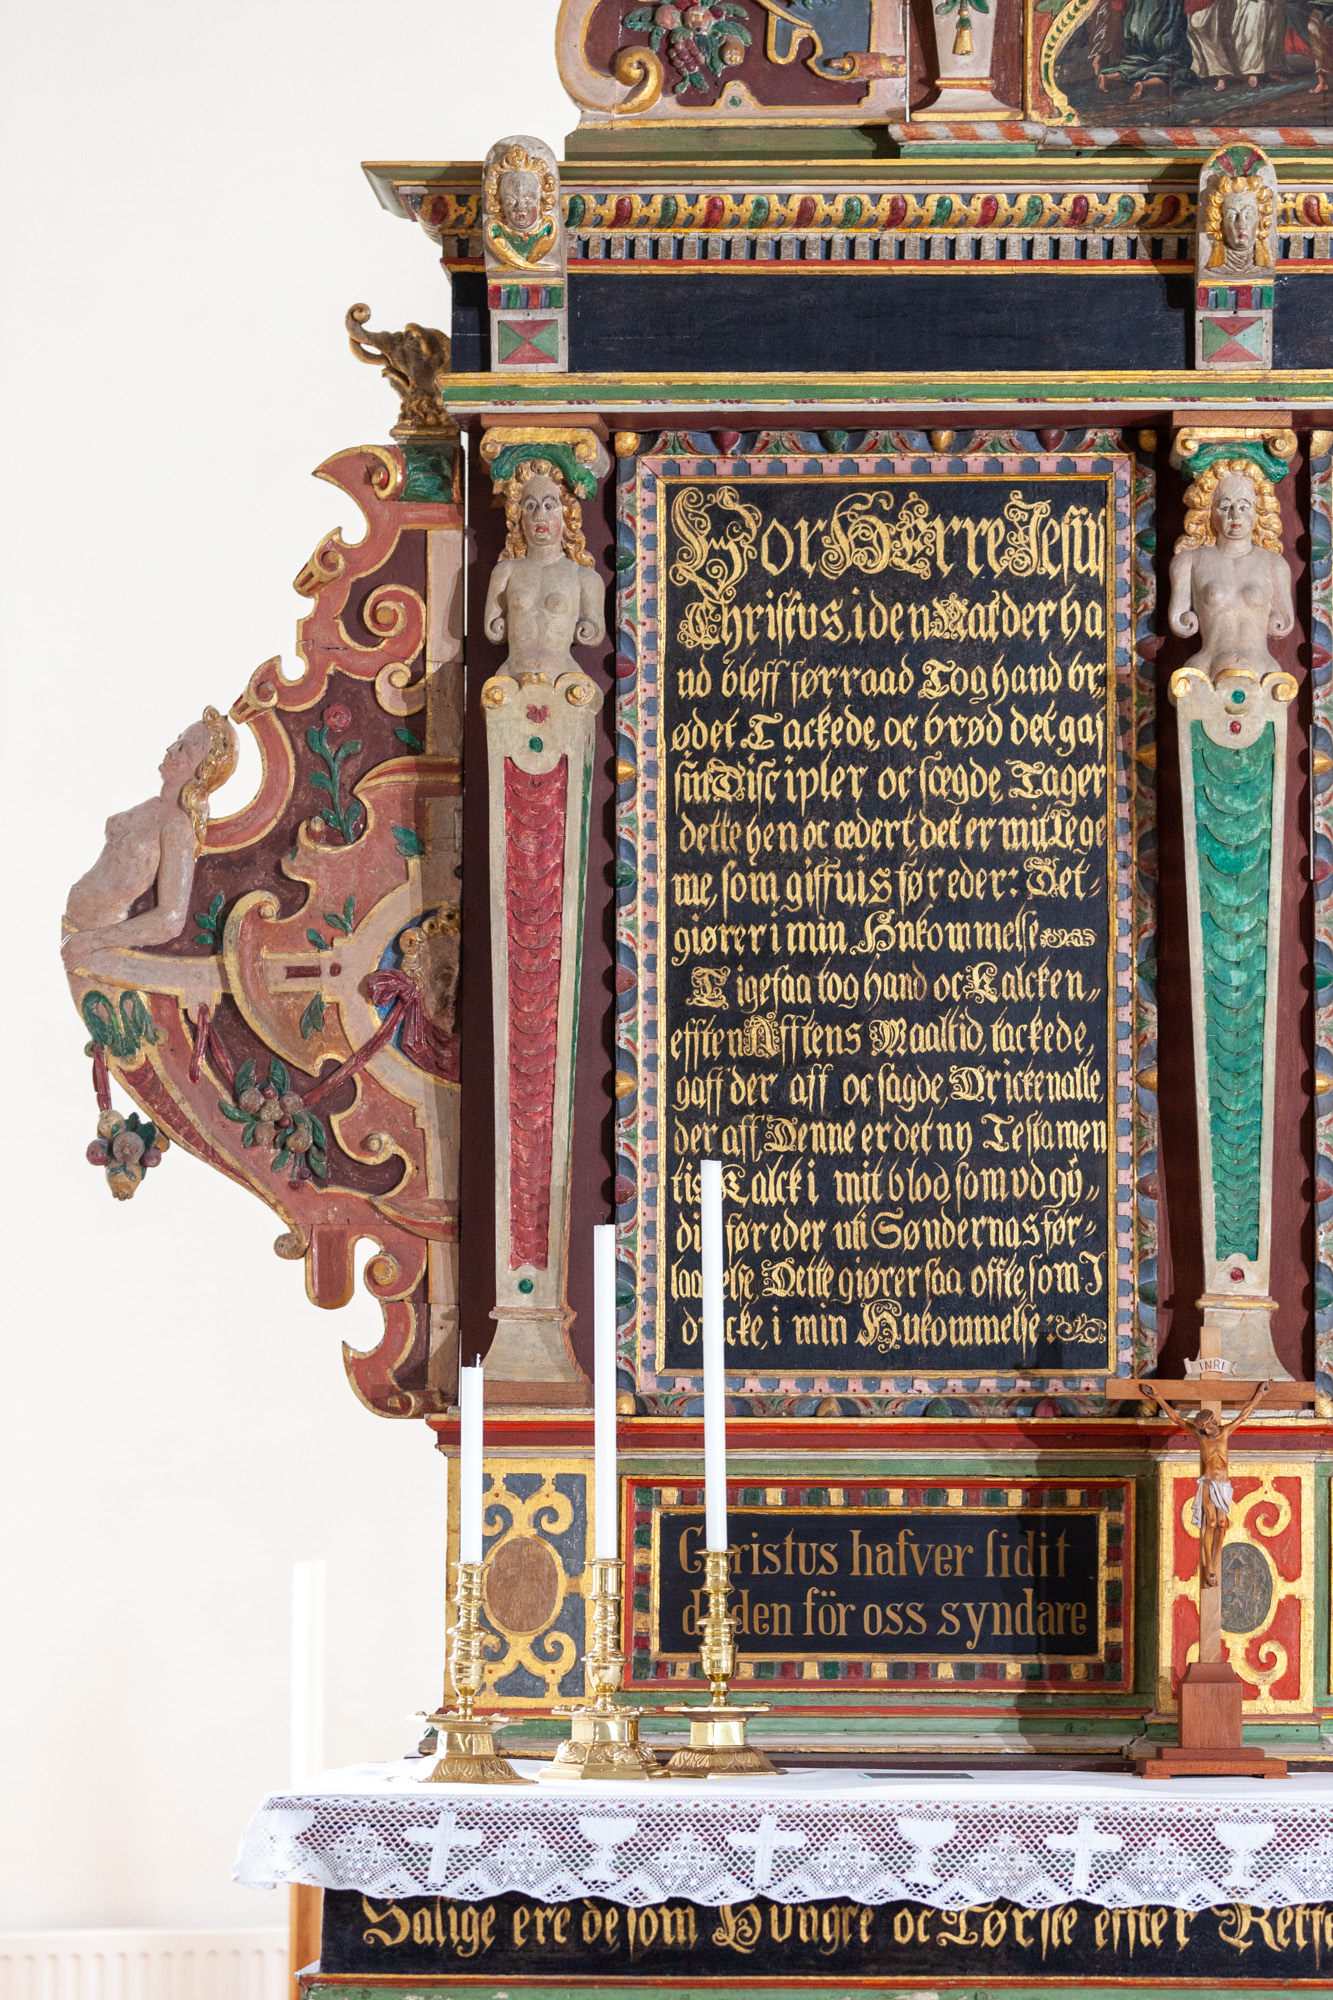 Vor HErre Jesus
Christus, i den Nat der ha
nd bleff førraad Tog hand br,
ødet Tackede, oc brød det gaf
sin Discipler oc sægde, Tager
dette hen oc æder t, det er mit Lege
me, som giffuis for eder: Det-
giører i min Hukommelse
Ligesaa tog hand oc Kalcken,,
efften Afftens Maaltid, tackede,
gaff der aff oc sagde, Dricken alle,
der aff, Denne er det ny Testamen
tis Kalck i mit blod, som vdgÿ,,
di för eder uti Søndernas før-
laa else, Dette giører saa offte som I
d cke, i min Hukommelse
INRI
C ristus hafver lidit
d den för oss syndare
Salige ere de som Hvngre oc Tørste effter Retf